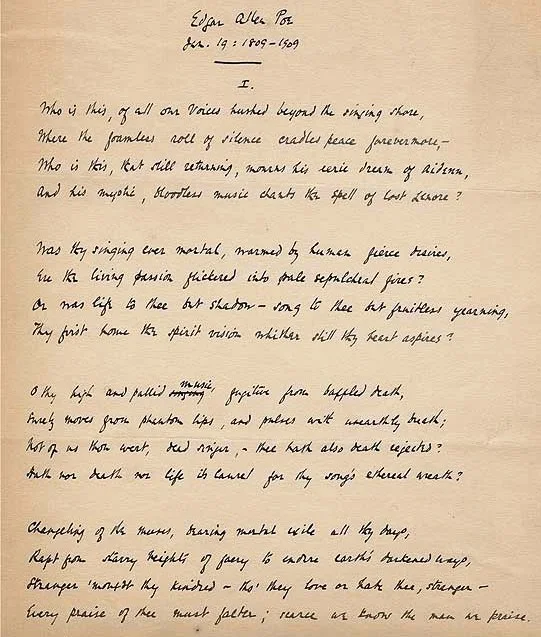 Edgar Allen Poe
Jan. 19 : 1809–1909
I.
Who is this, of all our Voices hushed beyond the singing shore,
Where the foamless roll of silence cradles peace forevermore,—
Who is this, that still returning, mourns his eerie dream of Aidenn,
And his mystic, bloodless music chants the spell of lost Lenore?
Was thy singing ever mortal, warmed by human fierce desires,
Ere the living passion flickered into pale sepulchral fires?
Or was life to thee but shadow – song to thee but fruitless yearning,
Thy first home the spirit vision whither still thy heart aspires?
O thy high and pallid singing music, fugitive from baffled death,
Surely moves from phantom lips, and pulses with unearthly breath;
Not of us thou wert, dead singer, – thee hath also death rejected?
Hath nor death nor life its laurel for thy song's ethereal wreath?
Changeling of the muses, bearing mortal exile all thy days,
Rapt from starry heights of faery to endure earth's darkened ways,
Stranger 'mongst thy kindred – tho' they love or hate thee, stranger –
Every praise of thee must falter; scarce we know the man we praise.